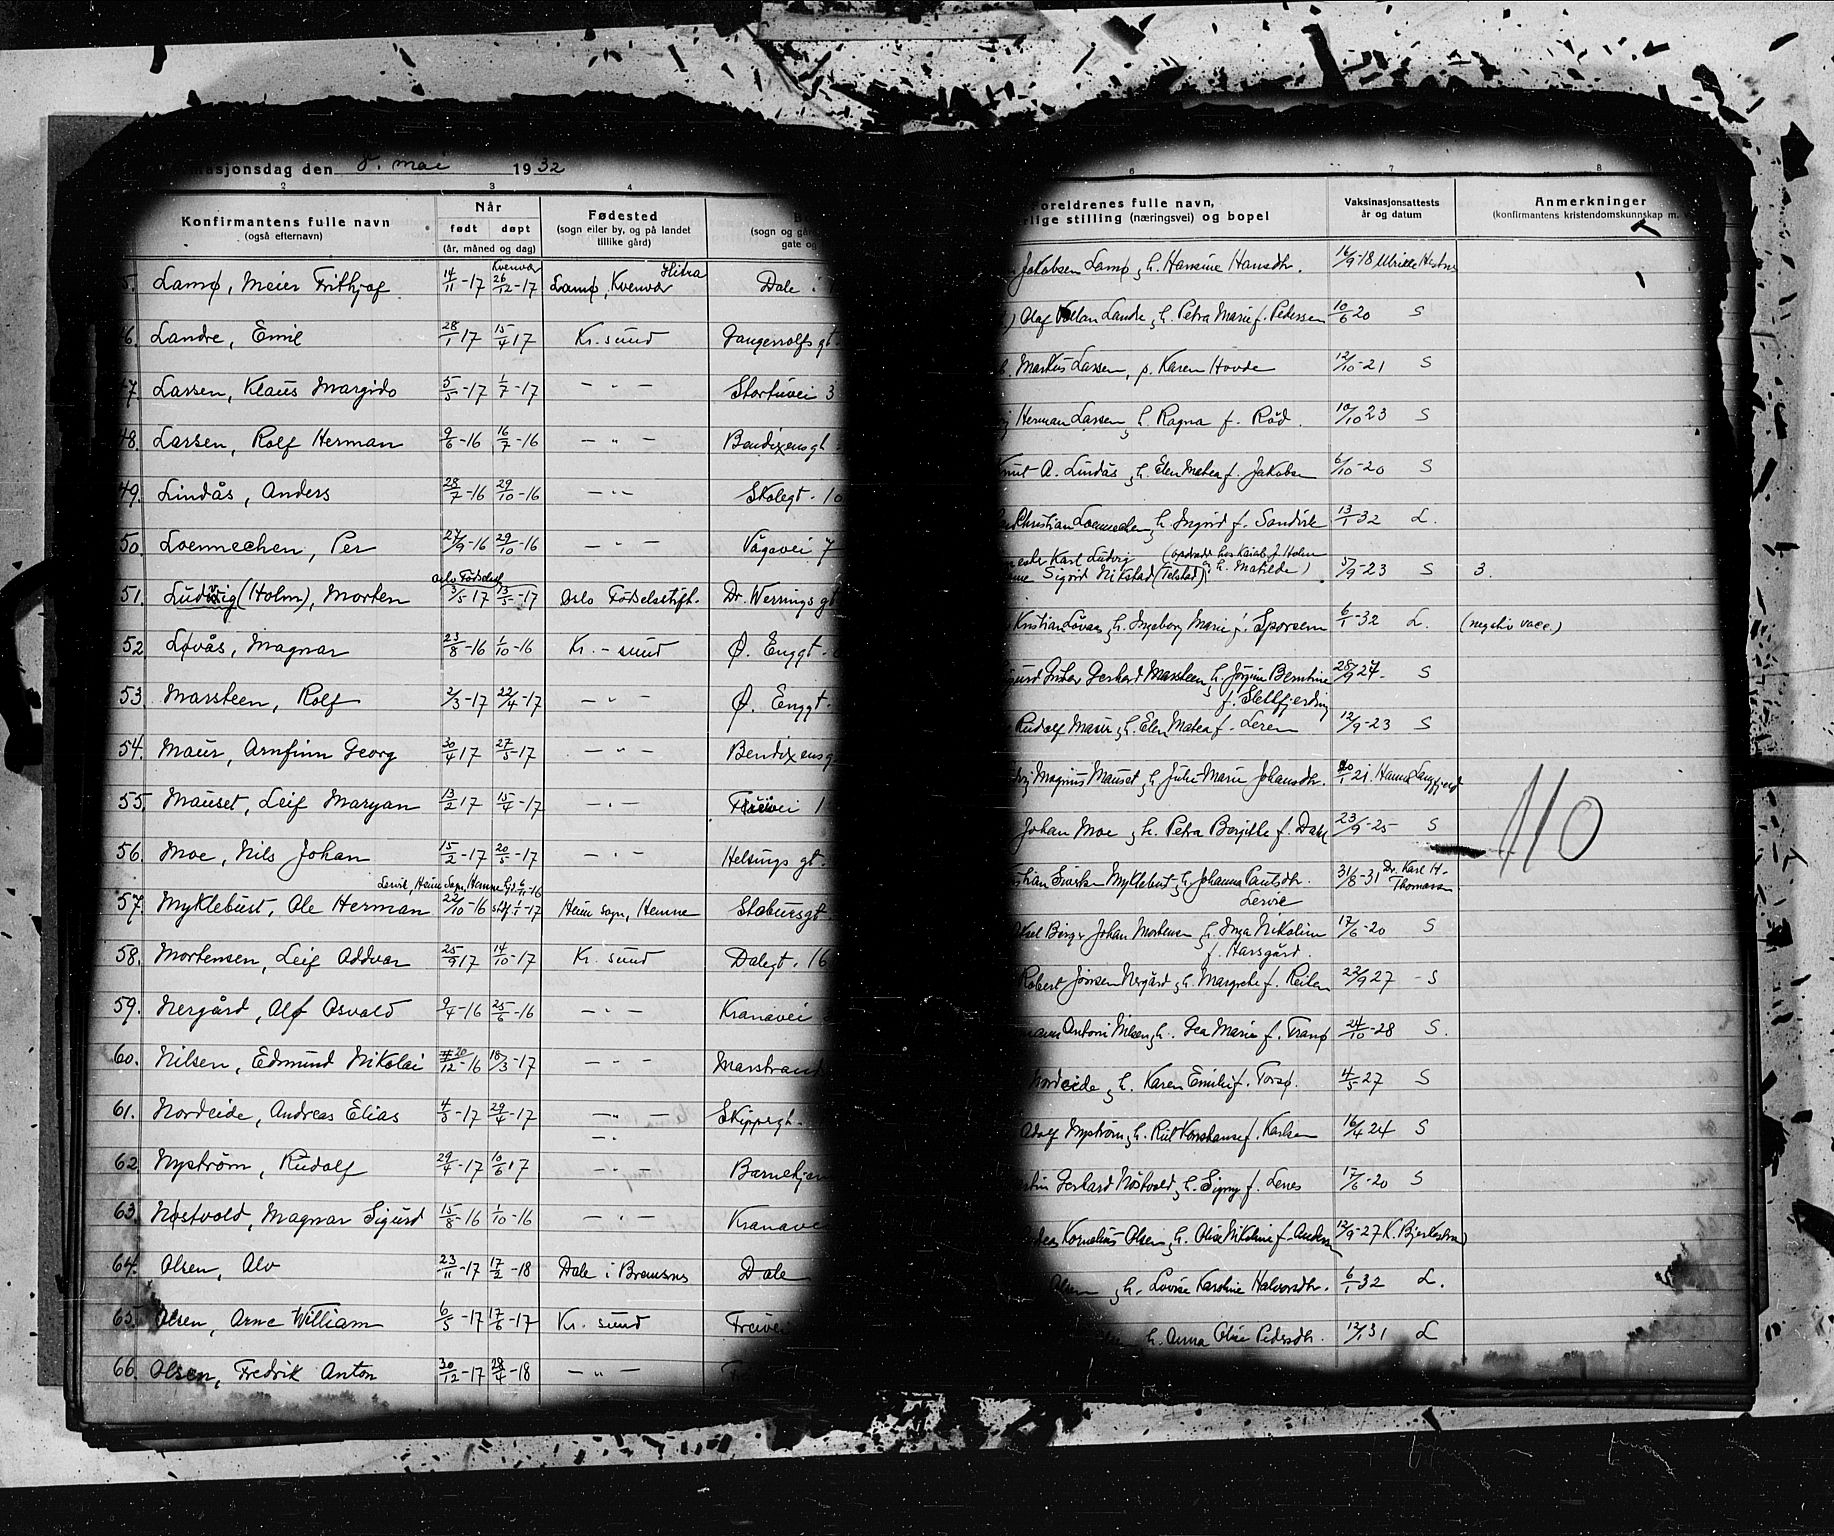 masjonsdag den 8. mai 1932
2 3 4
Konfirmantens fulle navn (også efternavn) Når født døpt (år, måned og dag) Fødested (sogn eller by, og på landet tillike gård) (sogn og går gate og
5. Lamø, Meier Frithjof 14/11-17 Kvenvær 26/12-17 Lamø, Kvenvær Hitra Dale
46. Landre, Emil 28/1 17 15/4 17 Kr. sund Gangerrolfs gt.
47. Lassen, Klaus Margido 5/5-17 1/7-17 — " — Stortuvei 3
48. Larsen, Rolf Herman 9/6-16 16/7-16 — " — Bendixens gt.
49. Lindås, Anders 28/7-16 29/10-16 — " — Skolegt. 10
50. Loennechen, Per 27/9-16 29/10-16 — " — Vågevei 7
51. Ludvig (Holm), Morten Oslo Fødselsst 3/5-17 13/5-17 Oslo Fødselsstift. Dr. Wessings gt
52 Løvås, Magnar 23/8-16 1/10-16 Kr. - sund Ø. Enggt.
53. Marsteen, Rolf 2/3-17 22/4-17 — " — Ø. Enggt.
54. Maur, Arnfinn Georg 30/4 17 27/5-17 — " — Bendixens g
55. Mauset, Leif Maryan 13/2 17 15/4-17 — " — Freivei 1
56. Moe, Nils Johan 15/2-17 20/5-17 — " — Helsings gt.
57. Myklebust, Ole Herman 22/10-16 stf. 1/1-17 Heim sogn, Hemne Stabursgt
58. Mortensen, Leif Oddvar 25/9 17 14/10-17 Kr. sund Dalegt. 16
59. Nergård, Alf Osvald 9/4-16 25/6-16 — " — Kranavei
60. Nilsen, Edmund Nikolai 20/12-16 18/3-17 — " — Marstrand
61. Nordeide, Andreas Elias 4/3-17 29/4-17 — " — Skippergt.
62 Nystrøm, Rudolf 29/4-17 10/6 17 — " — Barnehjem
63. Nøstvold, Magnar Sigurd 15/8-16 1/10-16 — " — Kranave
64. Olsen, Alv 23/11-17 17/2-18 Dale i Bremsnes Dale
65 Olsen, Arne William 6/5-17 17/6-17 Kr. sund Freivei
66. Olsen, Fredrik Anton 30/12-17 28/4-18 — " —
6 7 8
Foreldrenes fulle navn, rlige stilling (næringsvei) og bopel Vaksinasjonsattests år og datum Anmerkninger (konfirmantens kristendomskunnskap m. v.
Jakobsen Lamø, h. Hansine Hansdtr. 16/9-18
Olaf Landre, h. Petra Marie f. Pedersen 10/6 20 S
Markus Lassen, p. Karen Hovde 12/10-21 S
Herman Larsen, h. Ragna f. Rød. 10/10 23 S
Knut A. Lindås, h. Elen Matea f. Jakobsen 6/10-20 S
Christian Loennechen, h. Ingrid f. Sandvik 13/1 32 L.
Karl Ludvig (opdradd hos Holm
Sigrid Nikstad (Telstad) h. Matilde) 5/9-23 S 3.
Kristian Løvås, h. Ingeborg Marie f. Sporsem 6/1-32 L. (negativ vacc.)
Gerhard Marsteen, h. Jørgine Berntine 28/9 27. S
f. Slettfjerding
Rudolf Maur, h. Elen Matea f. Leren 12/9-23 S
Magnus Mauset, h. Julie Marie Johansdtr. 20/1 21. Hanna Langfjord
110
Johan Moe, h. Petra Borghille f. Dahl 23/9-25 S
Myklebust, h. Johanna Paulsdtr. 31/8-31 Dr. Karl H. Thomassen
Lervik
Birger Johan Mortensen, h. Inga Nikoline 17/6-20 S
f. Harsgård.
Robert Nergård, h. Margrethe f. Reiten 22/9 27 - S
Antoni Nilsen, h. Gea Marie f. Tranø 24/10-28 S.
Nordeide, h. Karen Emilie f. Torsø. 4/5-27 S
Adolf Nystrøm, h. f. Karlsen 16/4 24 S
Gerhard Nøstvold, h. Signy f. Lenes 17/6-20 S
Kornelius Olsen, h. Olise Nikoline f. Anders 12/9-27 K. Bjerkestrand
Olsen, h. Lovise Karoline Halvorsdtr. 6/1 32 L.
h. Anna Olise Pedersdtr. 12/1 31 L